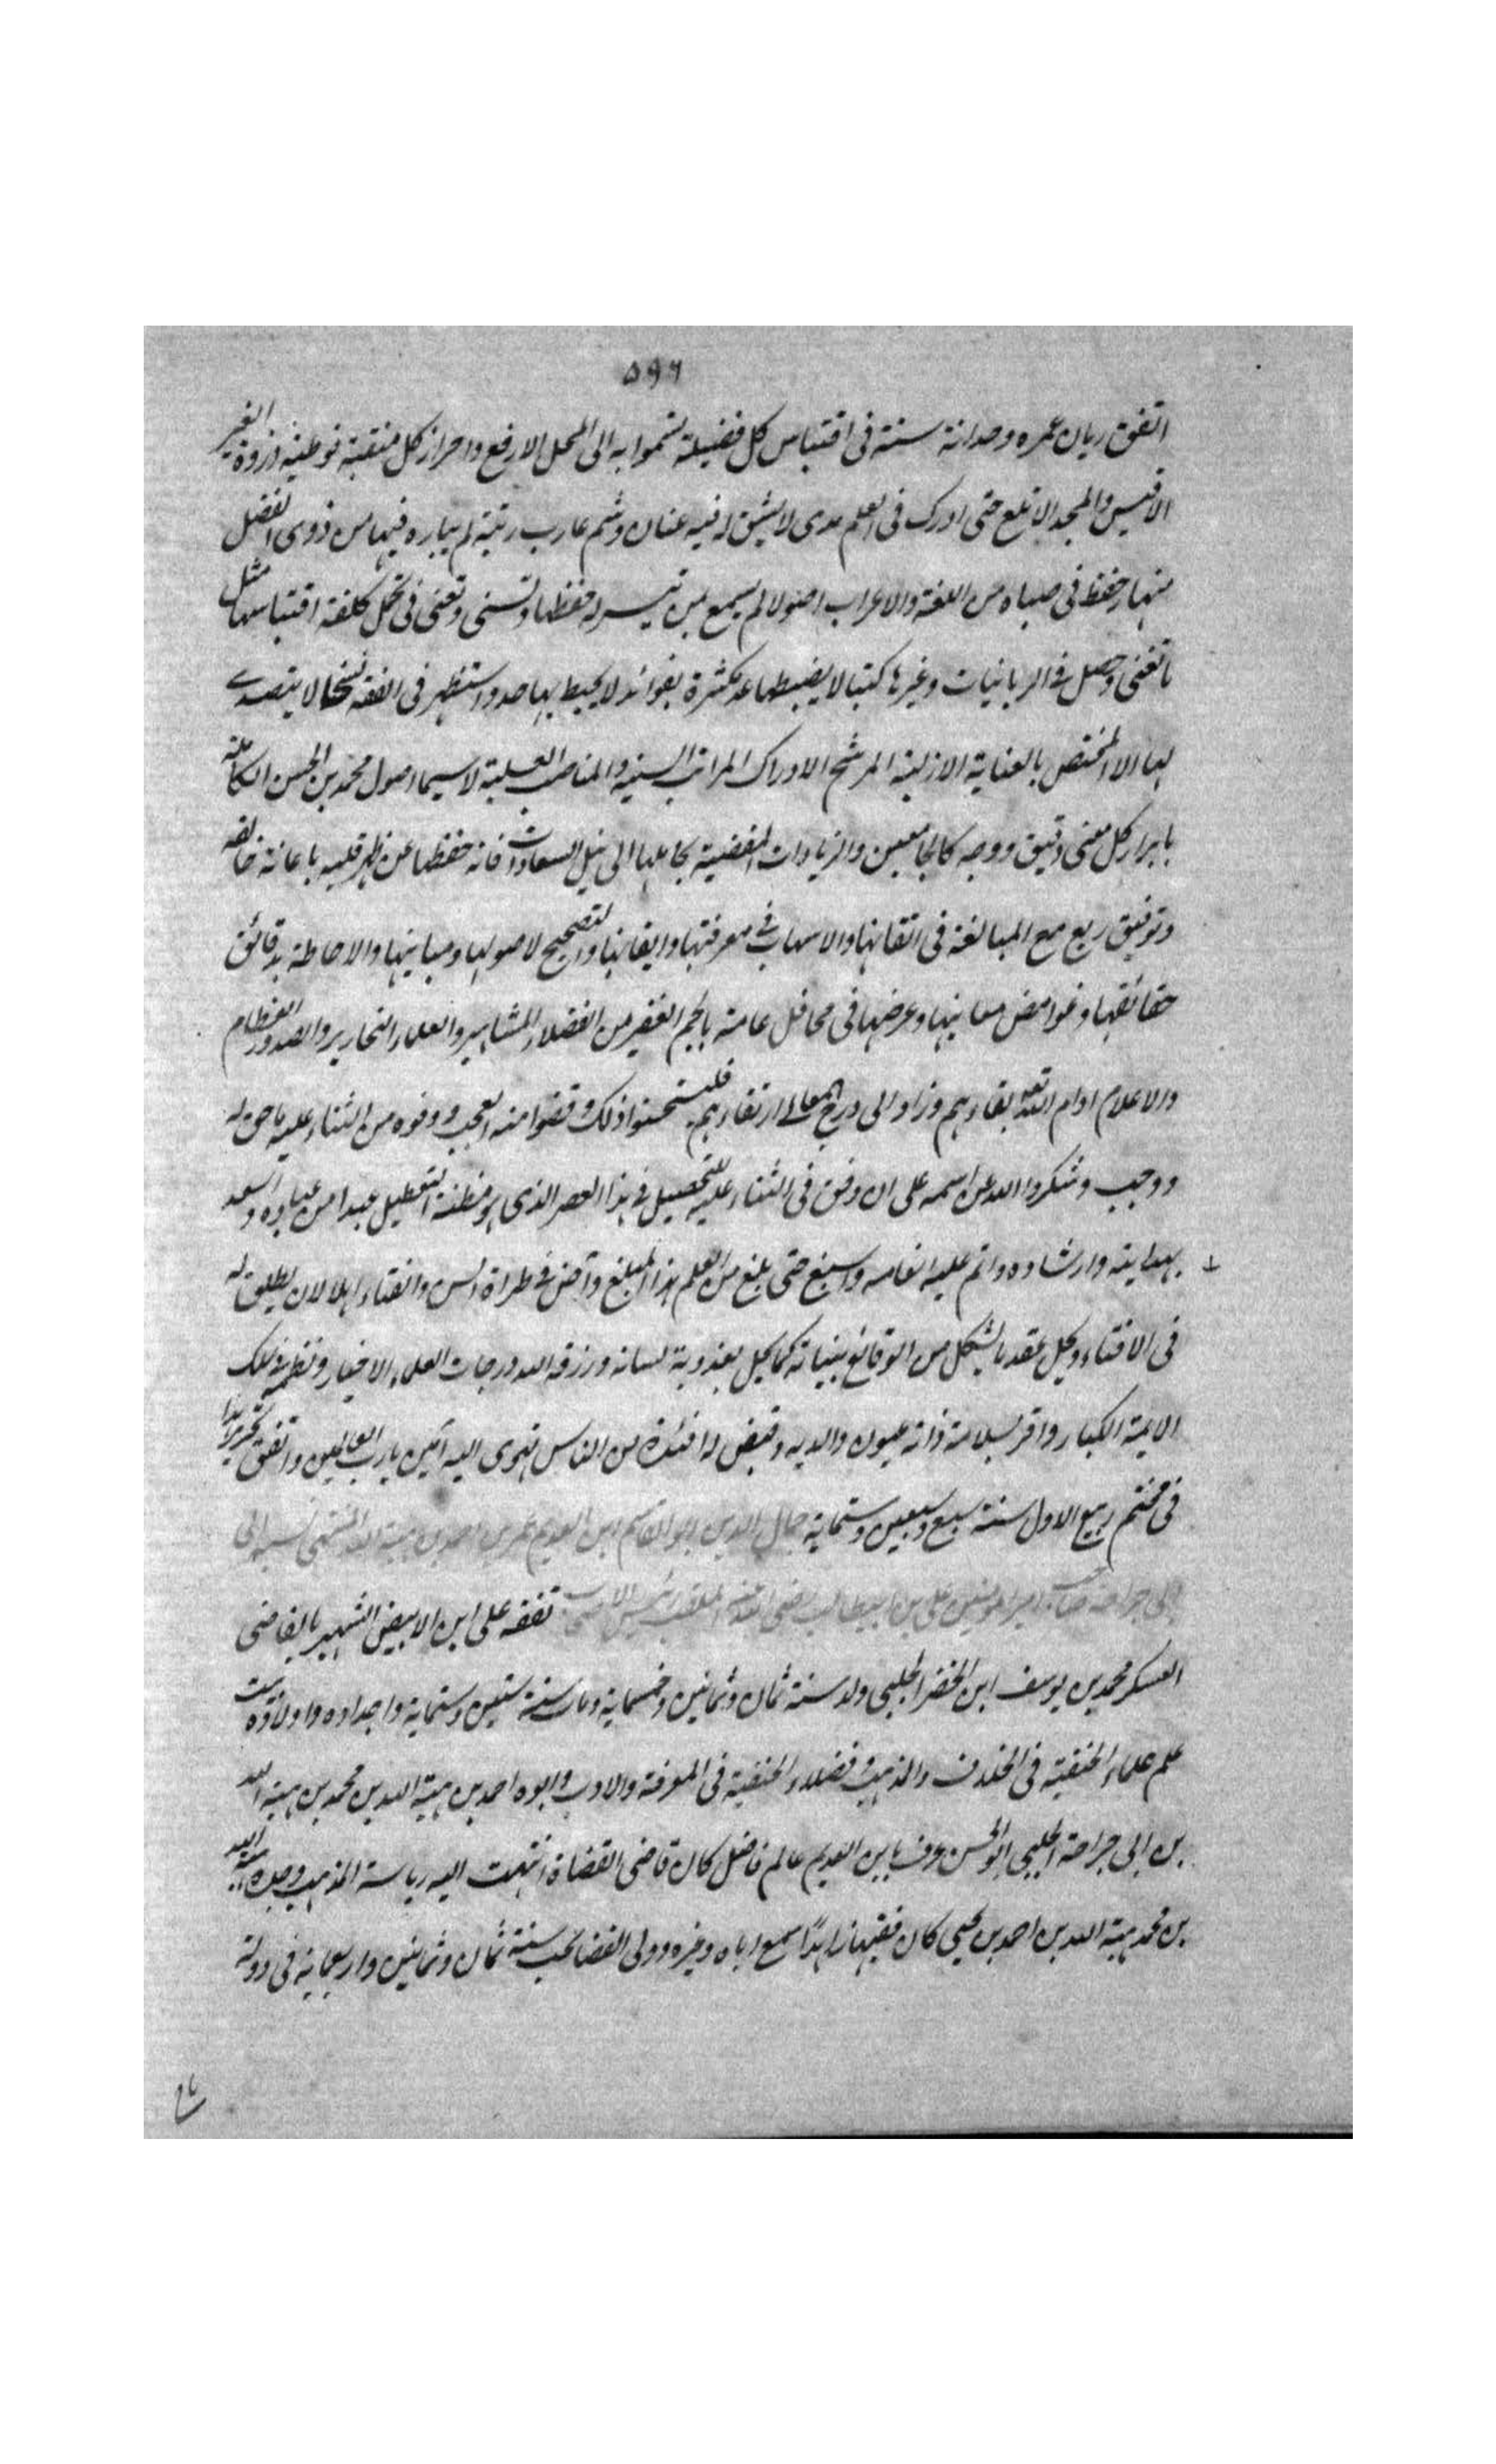 ٥٩٦
اتفق ريان عمره وحداثة سنة فى اقتباس كل فضيلة تسموا به الى المحل الارفع واحراز كل منقبة توطيه ذروة الغير
الاقيس والمجد الاتلع حتى ادرك فى العلم مدى لا يشق له فيه عنان وشم غارب رتبة لم يباره فيها من ذوى الفضل
منها حفظ فى صباه من اللغة والاعراب اصولا لم يسمع بمن تيسر له حفظها وتسنى وتعنى فى تحمل كلفة اقتباسها مثل
ما تعنى وحصل فى الربانيات وغيرها كتبا لا يضبطها عد كثرة بفوائد لا يحيط بها حد واستظهر فى الفقه نسخا لا يتصدى
لها الا المختص بالعناية الازلية المرشح الادراك المراتب السنية والمناصب العلية لاسيما اصول محمد بن الحسن الكاملة
بابراز كل معنى دقيق ووجه كالجامعين والزيادات المفضية بحاملها الى نيل السعادات فانه حفظها عن ظهر قلبه باعانة خالقه
وتوفيق ربع مع المبالغة فى اتقانها والاسهاب فى معرفتها وايقانها والتصحيح لاصولها ومبانيها والاحاطة بدقائق
حقائقها وغوامض معانيها وعرضها فى محافل عامة بالجم الغفير من الفضلاء المشاهير والعلماء النحارير والصدور العظام
والاعلام ادام الله تعالى بقاءهم وزاد الى درج المعالى ارتقاءهم فليستحسنوا ذلك وقضوا منه العجب ووفوه من الثناء عليه ما حق له
ووجب وشكروا الله عن اسمه على ان وفق فى الثناء عليه للتحصيل فى هذا العصر الذى هو مظنة التعطيل عبدا من عباده واسعد
بهدايته وارشاده واتم عليه انعامه واسبغ حتى بلغ من العلم هذا المبلغ وآض فى طراة السن والفتاء اهلا لان يطلق له
فى الافتاء ويحل عقد ما يشكل من الوقائع ببيانه كما يحل بعذوبة لسانه ورزقه الله درجات العلماء الاخيار ونظمه فى سلك
الايمة الكبار واقر بسلامة ذاته عيون والديه وقيض له افئدة من الناس تهوى اليه آمين يا رب العالمين واتفق تحرير هذا
فى مختتم ربيع الاول سنة سبع وسبعين وستماية جمال الدين ابو القاسم ابن العديم عمر بن احمد بن هبة الله المنتهى نسبه الى
ابى جرادة صاحب امير المؤمنين على بن ابيطالب رضى الله عنه الملقب رئيس الاصحاب تفقه على ابن الابيض الشهير بالقاضى
العسكر محمد بن يوسف ابن الخضر الحلبى ولد سنة ثمان وثمانين وخمسماية ومات سنة ستين وستماية واجداده واولاده بيت
علم علماء الحنفية فى الخلاف والمذهب وفضلاء الحنفية فى المعرفة والادب وابوه احمد بن هبة الله بن محمد بن هبة الله
بن ابى جرادة الحلبى ابو الحسن عرف بابن العديم عالم فاضل كان قاضى القضاة انتهت اليه رياسة المذهب وجده هبة الله
بن محمد هبة الله بن احمد بن يحيى كان فقيها زاهدًا سمع اباه وغيره وولى القضا بحلب سنة ثمان وثمانين واربعماية فى دولة